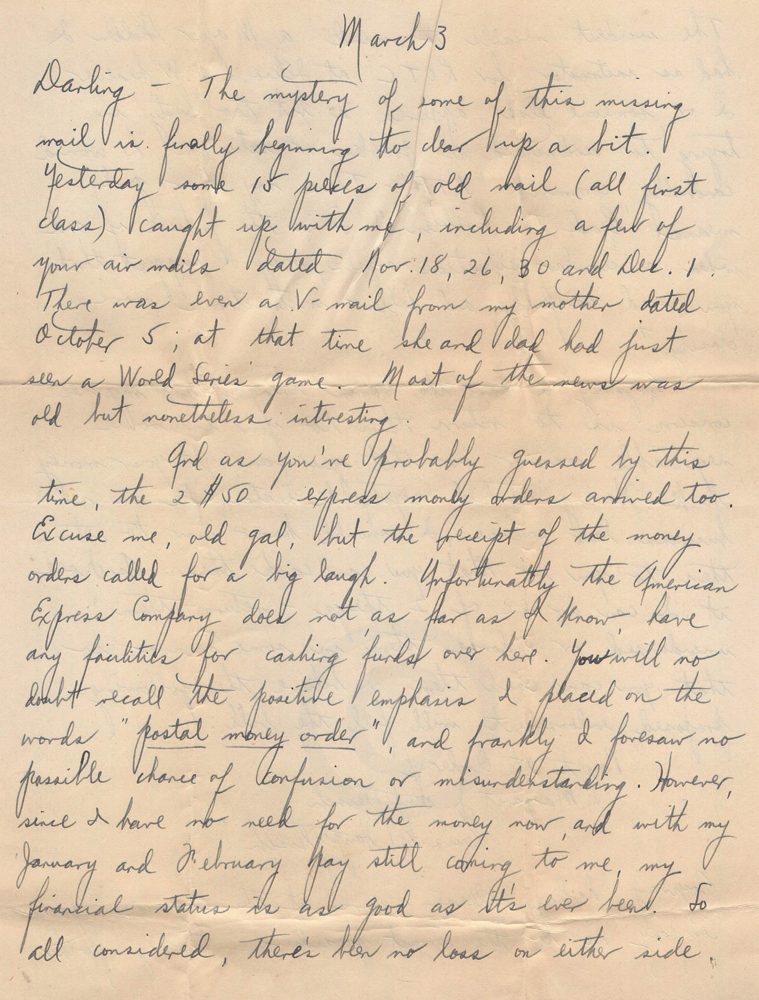 March 3
Darling - The mystery of some of this missing
mail is finally beginning to clear up a bit.
Yesterday some 15 pieces of old mail (all first
class) caught up with me, including a few of
your air mails dated Nov. 18, 26, 30 and Dec. 1.
There was even a V-mail from my mother dated
October 5; at that time she and dad had just
seen a World Series game. Most of the news was
old but nonetheless interesting.
And as you've probably guessed by this
time, the 2 $50 express money orders arrived too.
Excuse me, old gal, but the receipt of the money
orders called for a big laugh. Unfortunatly the American
Express Company does not, as far as I know, have
any facilities for cashing funds over here. You will no
doubt recall the positive emphasis I placed on the
words "postal money order", and frankly I foresaw no
possible chance of confusion or misunderstanding. However,
since I have no need for the money now, and with my
January and February pay still coming to me, my
financial status is as good as it's ever been. So
all considered, there's been no loss on either side.